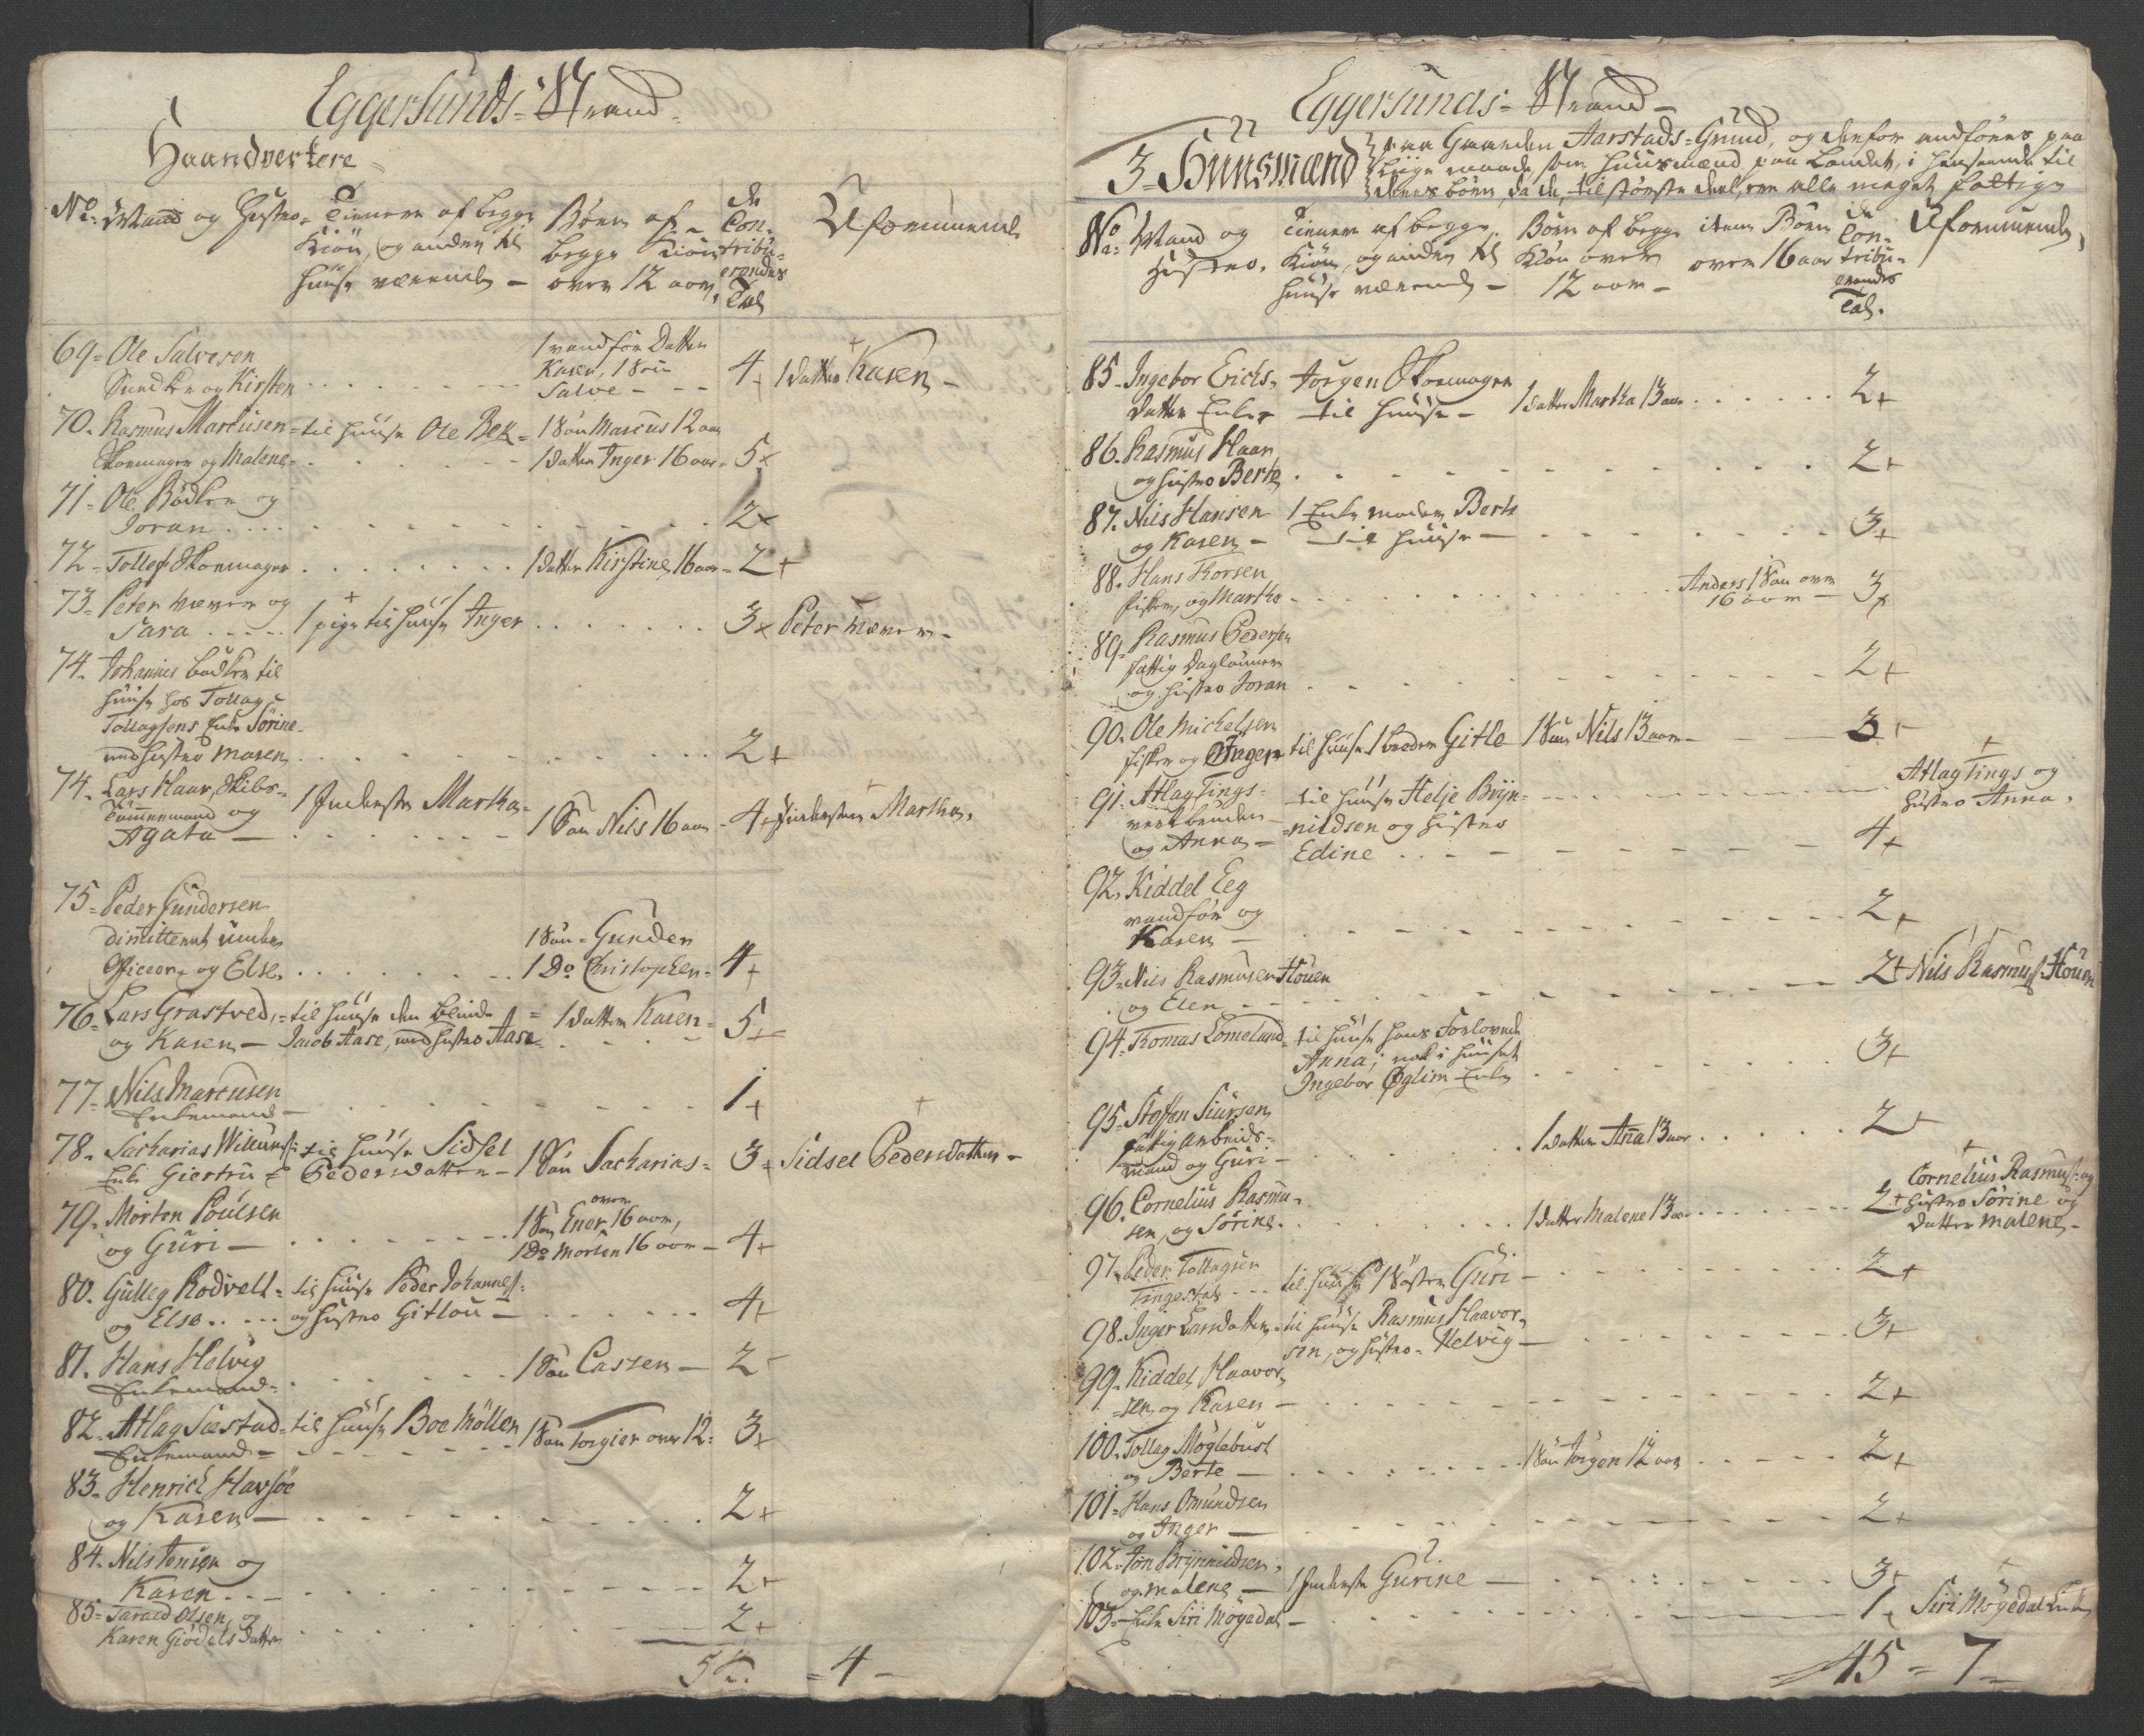 Eggersunds-Strand
Haandverkere
No: Mand og Hustro
Tienere af begge
Kiön, og anden til
Huuse værende
Börn af
begge Kiön
over 12 aar
de
Con-
tribu-
erendes
Tal
Uformuende
69 Ole Salvesen
og Kirsten
1 vanför Datter
Karen, 1 Sön
Salve
4
1 Datter Karen
70. Rasmus Marcusen til Huuse Ole Bek 1 Sön Marcus 12 aar
Skomager og Malene 1 Datter Inger 16 aar 5
71 Ole Bödker og
Joran 2
72 Tollef Skomager 1 Datter Kirstine 16 aar 2
73 Peter Væver og
Sara 1 pige til Huuse Inger 3 Peter Væver
74. Johannes Bödker til
Huuse hos Tollag
Tollagsens Enke Sörine
med Hustro Maren 2
74. Lars Haar, Skibs-
Tömmermand og
Agata 1 Inderste Martha 1 Sön Nils 16 aar 4 Indersten Martha
75 Peder Gundersen
dimitteret under
Officeer og Else 1 Sön Gunder
1 Do Christopher 4
76 Lars Grastved, til Huuse den blinde 1 Datter Karen 5
og Karen Jacob Aase, med Hustro Aase
77 Nils Marcusen
Enkemand 1
78. Sacharias Wilumsens til Huuse Sidsel
Enke Giertru Pedersdatter 1 Sön Sacharias 3 Sidsel Pedersdatter
79. Morten Poulsen
og Guri 1 Sön Ener over 16 aar,
1 Do Morten 16 aar 4
80. Gulleg Rodvelt til Huuse Peder Johannes:
og Else og Hustro Gitlou 4
81. Hans Helvig
Enkemand 1 Sön Cassen 2
82. Atlag Sæstad til Huuse Boe Möller 1 Sön Torgier over 12 3
Enkemand
83. Henrich Havsöe
og Karen 2
84. Nils Tonsen og
Karen 2
85 Tarald Olsen, og
Karen Giödels Datter 2
5 4

Eggersunds-Strand
3 Huusmænd
paa Gaarden Aarstads-Grund, og derfor anföres paa
liige maade, som Huusmænd paa Landet, i Henseende til
deres börn, da de, til störste deel, ere alle meget fattige
No: Mand og
Hustro.
Tienere af begge
Kiön, og anden til
Huuse værende
Börn af begge
Kiön over
12 aar
item Börn
over 16 aar
de
Con-
tribu-
erendes
Tal.
Uformuende
85 Ingebor Erichs- Torgen Skomager
Datter Enke til Huuse 1 Datter Martha 13 aar 2
86. Rasmus Haar
og Hustro Berte 2
87. Nils Hansen 1 Enke moder Berte
og Karen til Huuse 3
88. Hans Torsen
Fisker, og Martha Anders 1 Sön over
16 aar 3
89. Rasmus Pedersen
fattig Daglönner
og Hustro Joran 2
90. Ole Michelsen
Fisker og Inger til Huuse 1 broder Gitle 1 Sön Nils 13 aar 3
91. Atlag Tings-
og Anna til Huuse Helje Bryn-
nildsen og Hustro
Edine 4
Atlag Tings og
Hustro Anna
92. Kiddel Eeg
vanför og
Karen 2
93 Nils Rasmusen Houen
og Elen 2 Nils Rasmus: Houen
94 Tomas Lomeland til Huuse hans Forlovede
Anna; nok i Huuset
Ingebor Öglim Enke 3
95 Steffen Siursen
fattig Arbeids-
mand og Guri 1 Datter Anna 13 aar 2
96. Cornelius Rasmu-
sen, og Sörine 1 Datter Malene 13 aar 2
Cornelius Rasmus: og
Hustro Sörine og
Datter Malene
97. Peder Tollagsen
til Huuse 1 Söster Guri 2
98. Inger Larsdatter til Huuse Rasmus Haavor-
sen, og Hustro Helvig 3
99. Kiddel Haavor-
sen og Karen 2
100. Tollag Möglebust
og Berte 1 Sön Jörgen 12 aar 2
101 Hans Omundsen
og Inger 2
102. Jon Brynnildsen,
og Malene 1 Inderste Gurine 3
103 Enke Siri Mögedal 1 Siri Mögedal Enke
45 7